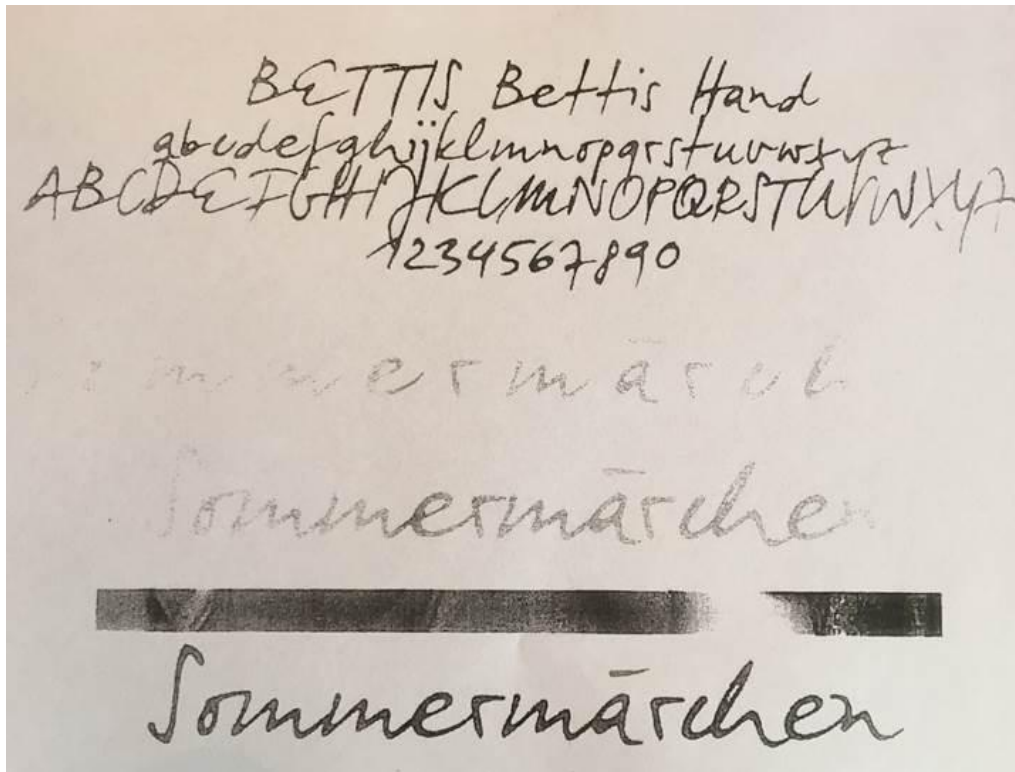 BETTIS Bettis Hand
abcdefghijklmnopqrstuvwxyz
ABCDEFGHIJKLMNOPQRSTUVWXYZ
1234567890
ommermärch
Sommermärchen
Sommermärchen